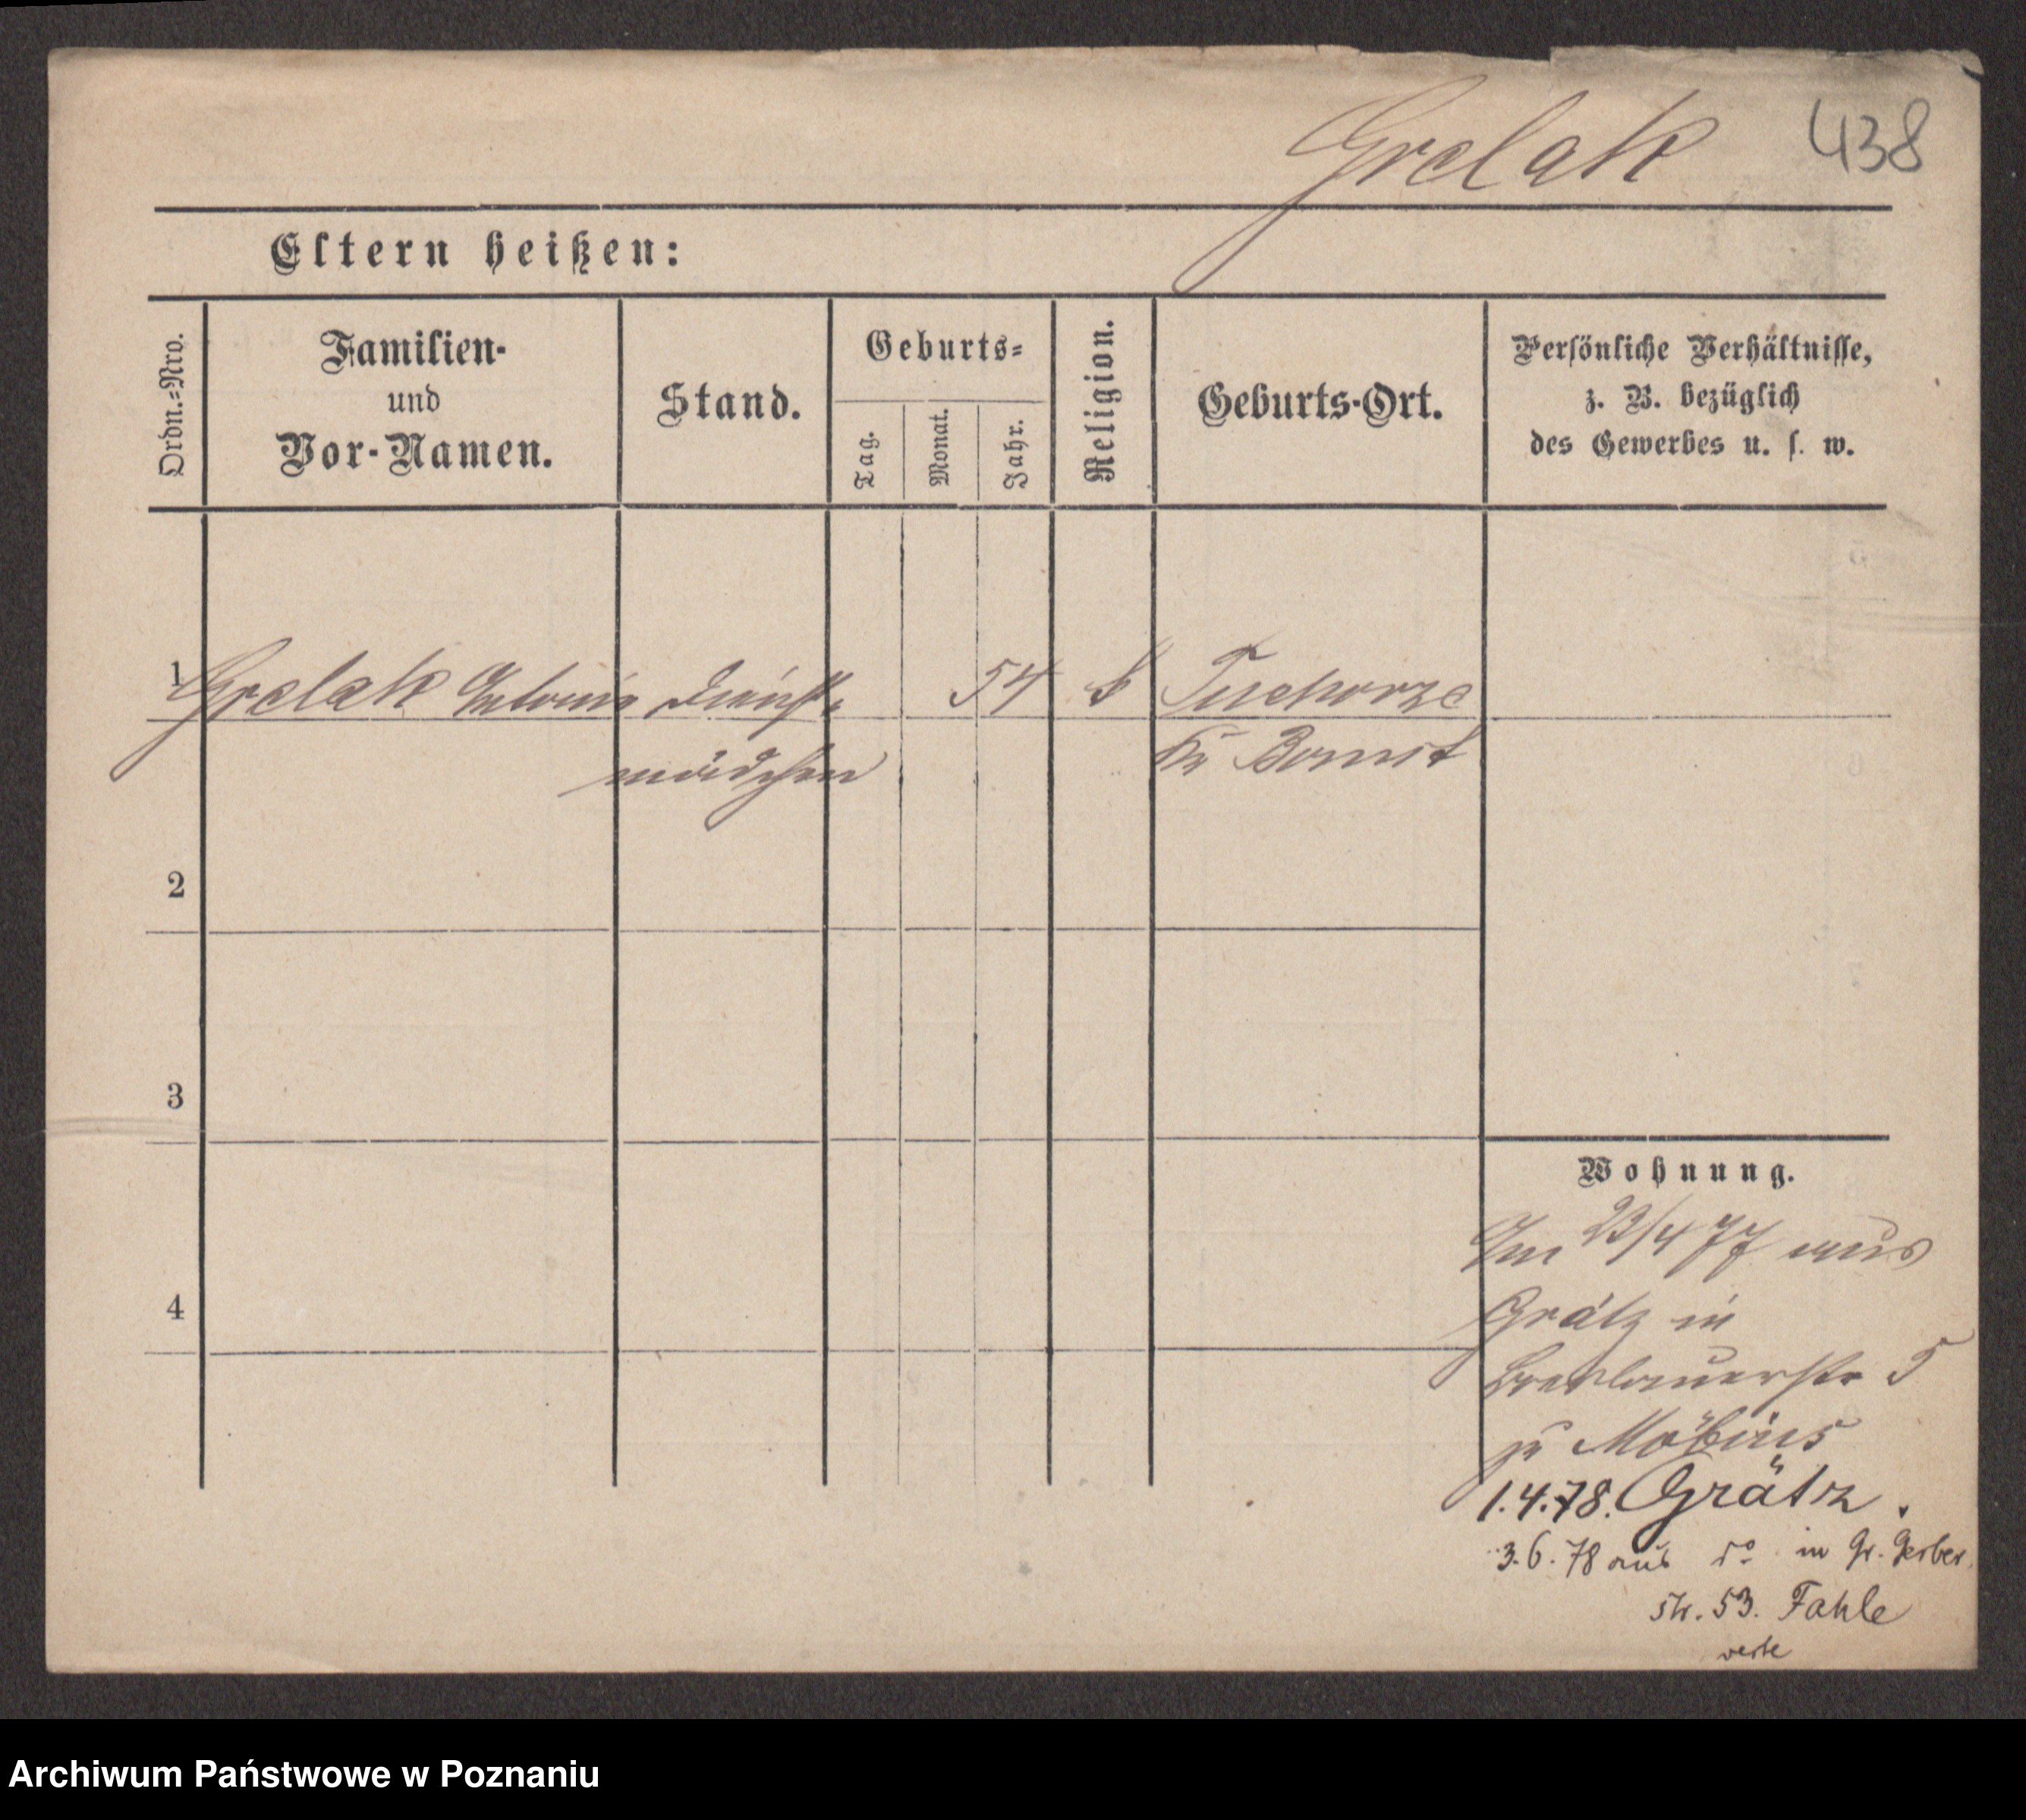 Grelak 438
Eltern heißen:
Ordn.=Nro.
Familien-
und
Vor-Namen.
Stand.
Geburts=
Tag.
Monat.
Jahr.
Religion.
Geburts-Ort.
Persönliche Verhältnisse,
z. B. bezüglich
des Gewerbes u. s. w.
1 Grelak Antonie Dienst= 54 k Tuchorze
mädchen Kr Bomst
2
3
4
Wohnung.
Am 23/4 77 aus
Grätz in
Breslauerstr 5
zu Möbius
1.4.78. Grätz.
3.6.78 aus do in Gr. Gerber
str. 53. Fahle
verte
Archiwum Państwowe w Poznaniu